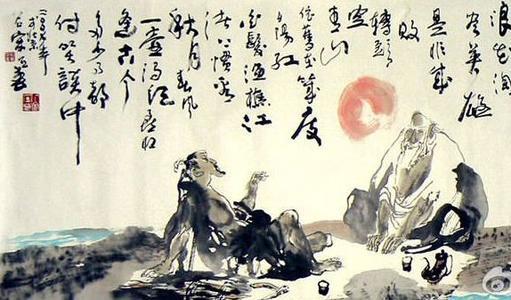 浪花淘
尽英雄
是非成
败
转头
空
青山
依旧在几度
夕阳红
白发渔樵江
渚上惯看
秋月春风
一壶浊酒喜相
逢古今
多少事都
付笑谈中